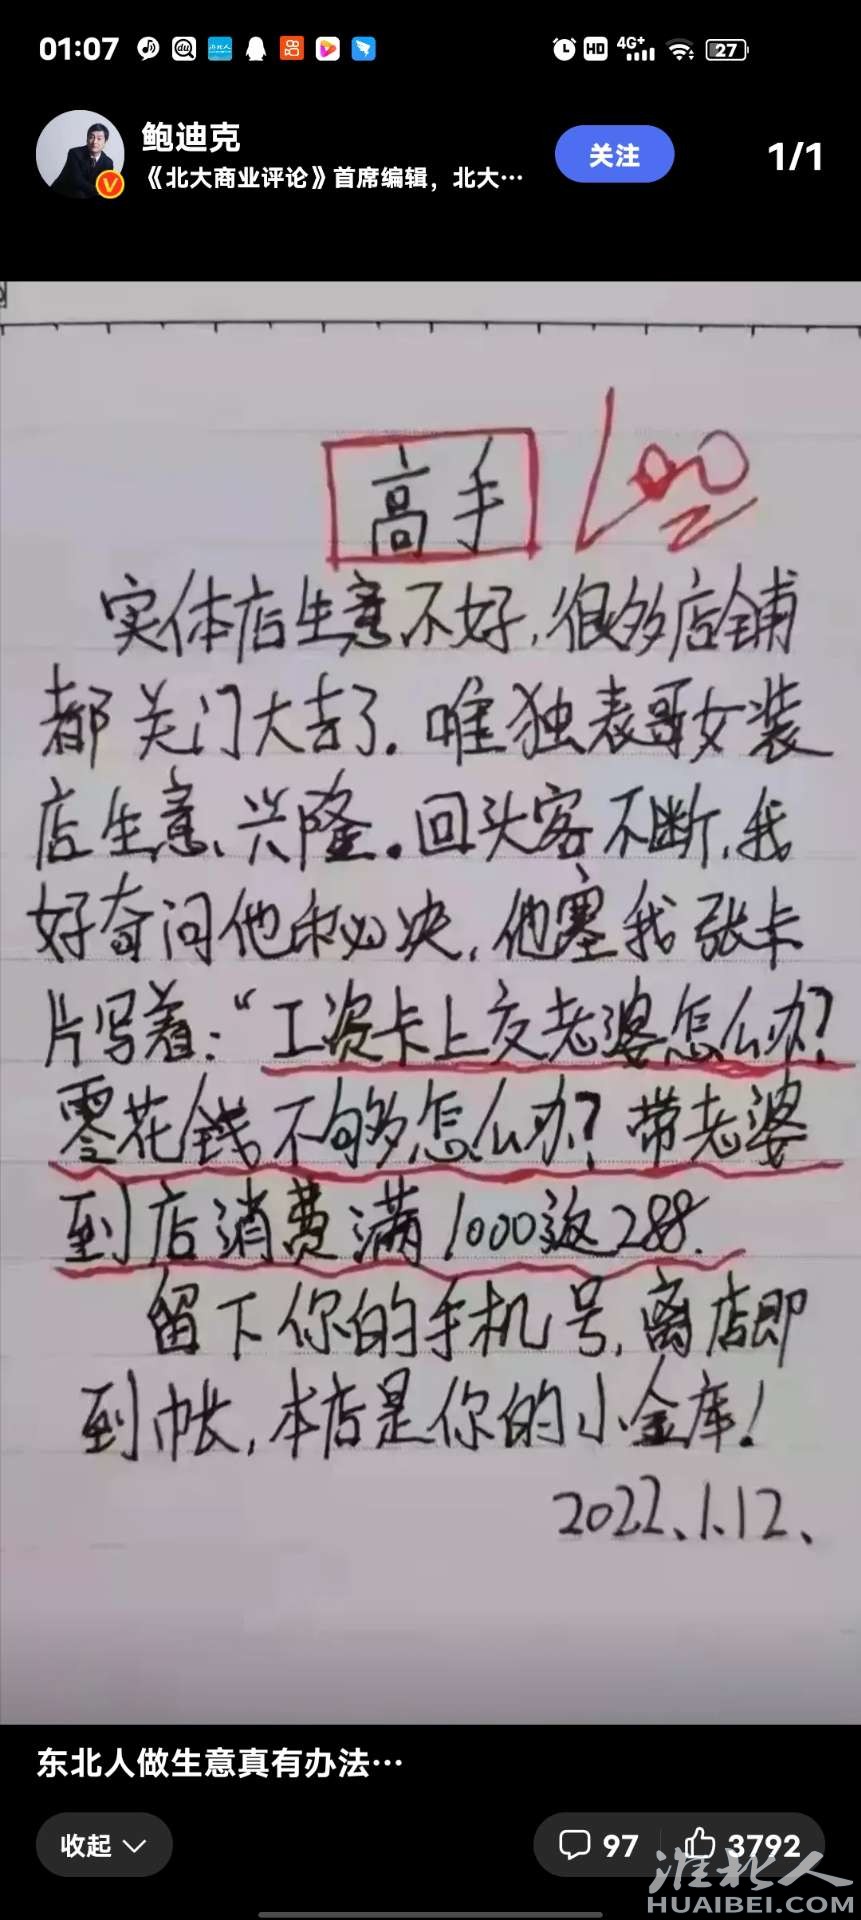 01:07
HD 4G+ 27
鲍迪克
《北大商业评论》首席编辑，北大…
关注
1/1
高手
100
实体店生意不好,很多店铺
都关门大吉了.唯独表哥女装
店生意兴隆.回头客不断,我
好奇问他秘决,他塞我张卡
片写着:“工资卡上交老婆怎么办?
零花钱不够怎么办?带老婆
到店消费满1000返288.
留下你的手机号,离店即
到帐,本店是你的小金库!
2022.1.12.
东北人做生意真有办法…
收起
97
3792
淮北人
HUAIBEI.COM